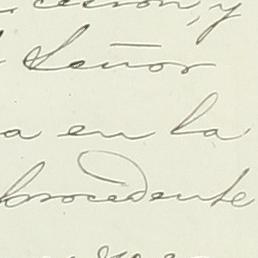 y
Señor
a en la
procedente